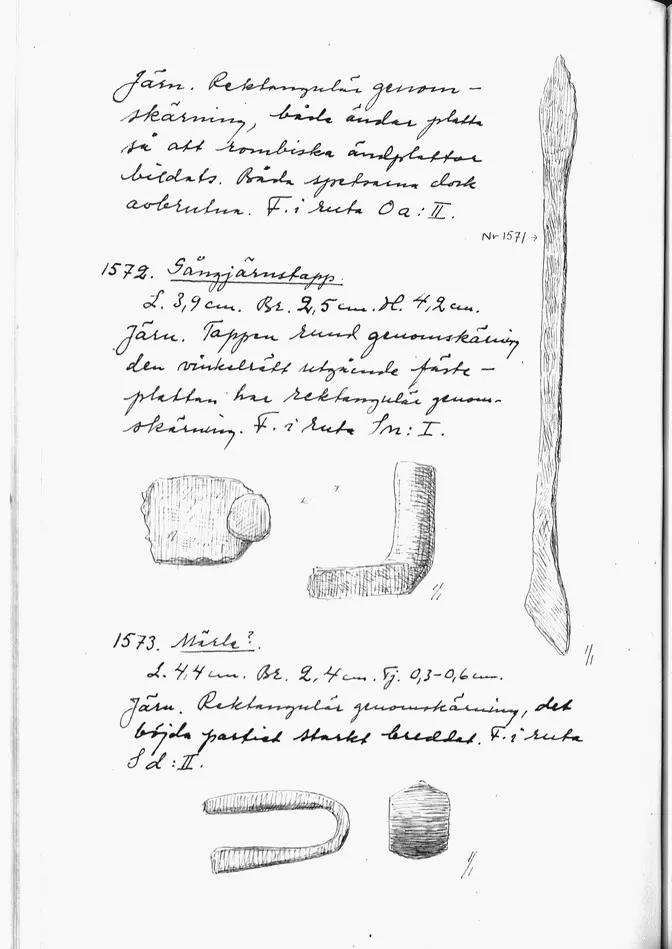 Järn. Rektangulär genom-
skärning, båda ändar platta
så att rombiska ändplattor
bildats. Båda spetsarna dock
avbrutna. F. i ruta Oa: II.
Nr 1571 →
1572. Gångjärnstapp.
L. 3,9 cm. Br. 2,5 cm. H. 4,2 cm.
Järn. Tappen rund genomskärning
den vinkelrätt utgående fäste-
plattan har rektangulär genom-
skärning. F. i ruta Sn: I.
1/1
1573. Märla?.
L. 4,4 cm. Br. 2,4 cm. Tj. 0,3-0,6 cm.
1/1
Järn. Rektangulär genomskärning, det
böjda partiet starkt breddat. F. i ruta
Sd: II.
1/1